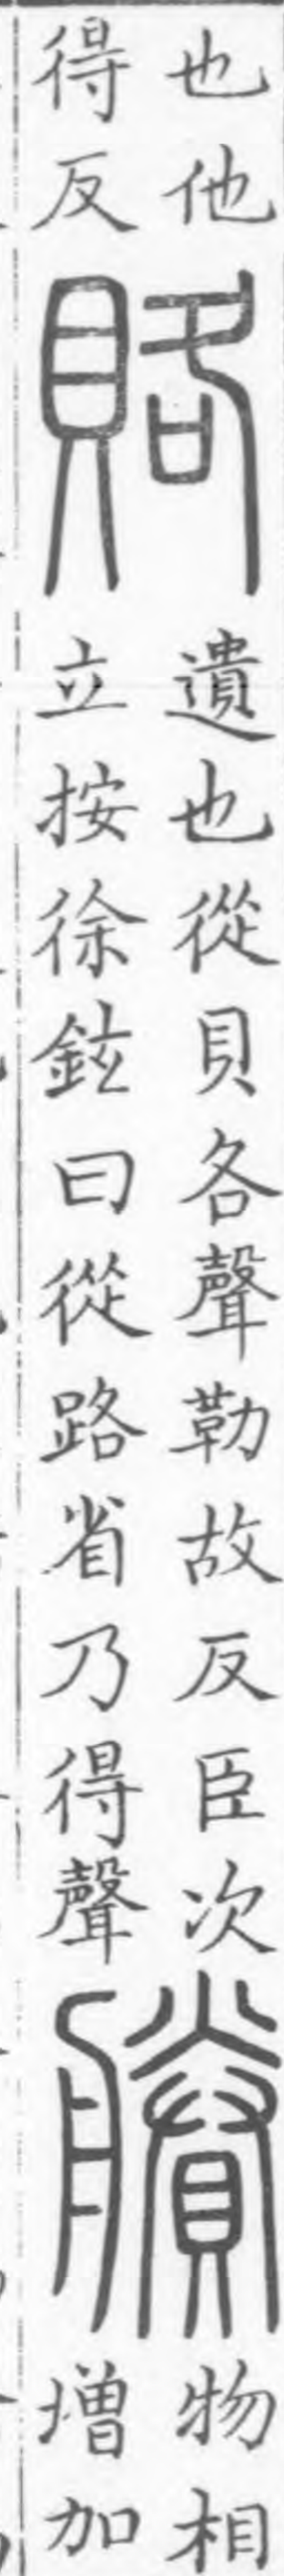 也他
得反
賂
遺也從貝各聲勒故反臣次
立按徐鉉曰從路省乃得聲
賸
物相
增加